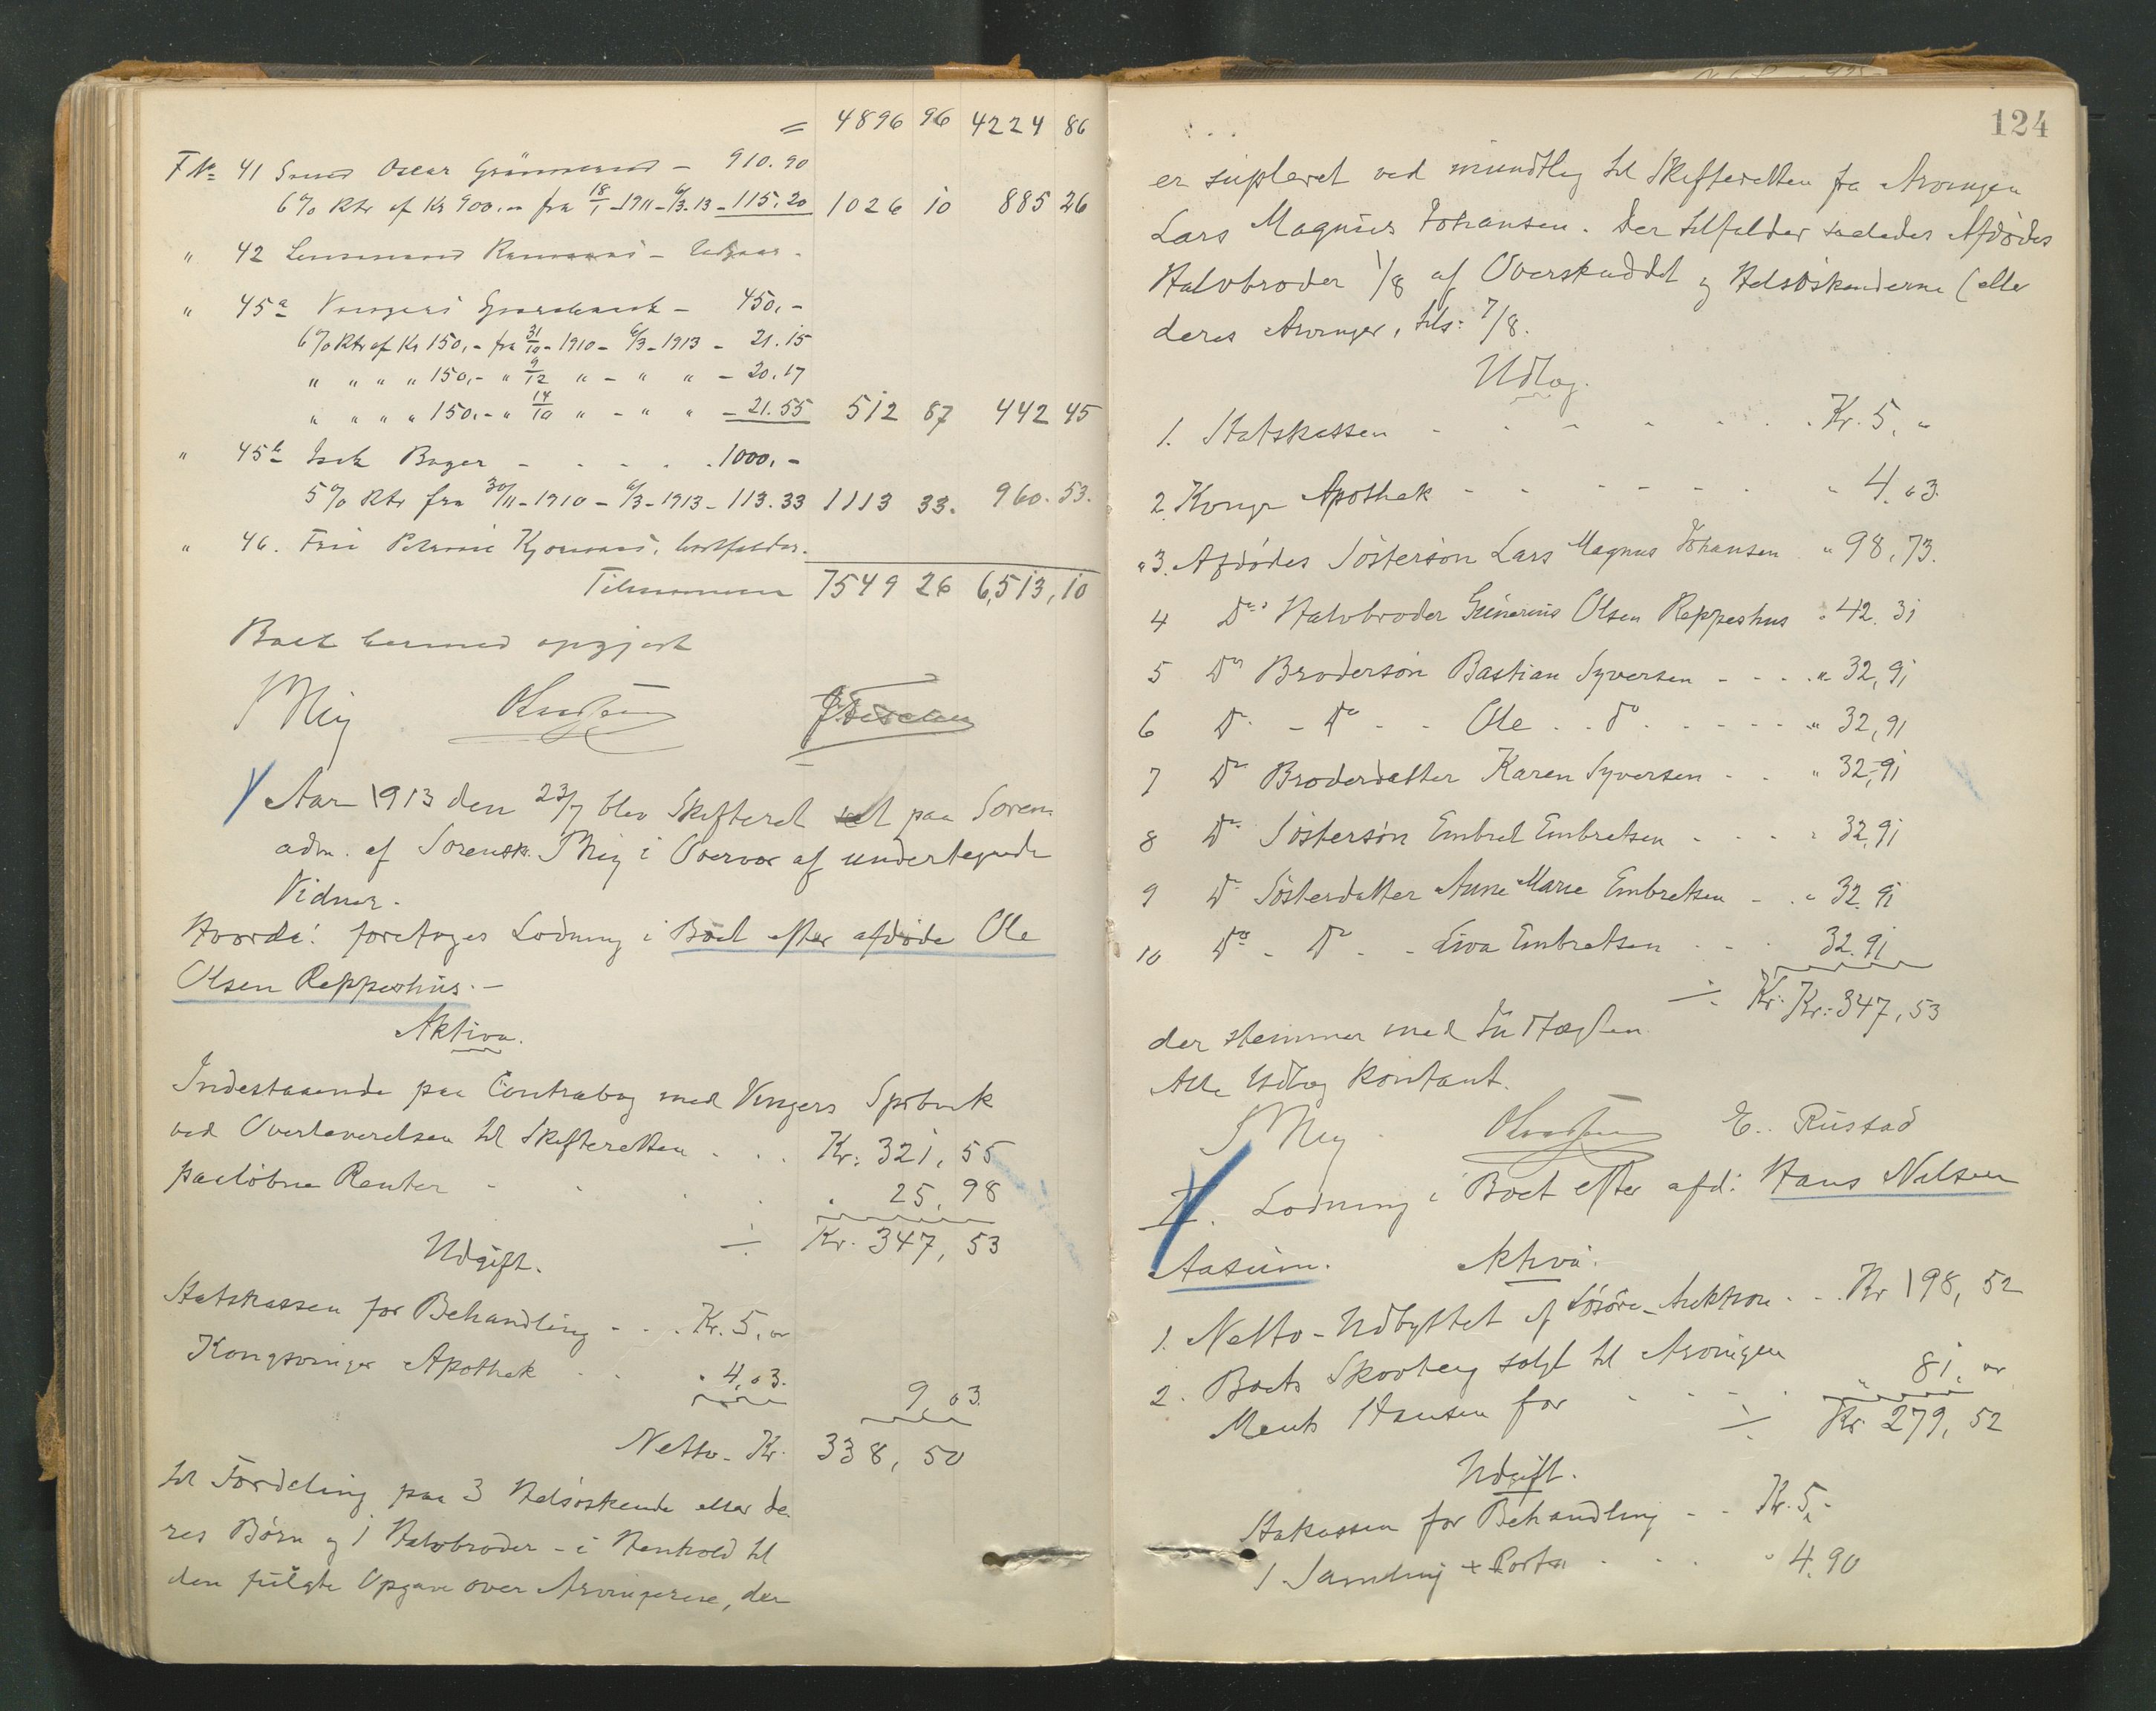 = 4896 96 4224 86
F No 41 Oscar - 910.90
6% Rtr af Kr 900,- fra 18/1-1911-6/3-13 - 115,20 1026 10 885 26
" 42 Lensmand -
" 45a Vingers Sparebank - 450,-
6% Rtr af Kr 150,- fra 31/10-1910-6/3-1913 - 21.15
" " " " 150,- " 9/12 " - " " - 20.17
" " " " 150,- " 14/10 " - " " - 21.55 512 87 442 45
" 45b Bager - . . . . 1000,-
5% Rtr fra 30/11-1910-6/3-1913 - 113.33 1113 33. 960.53.
" 46. bortfalder.
Tilsammen 7549 26 6,513,10
Boet hermed opgjort
Aar 1913 den 23/7 blev Skifteret sat paa Soren.
adm. af Sorensk. i Overvær af undertegnede
Vidner.
Hvorda: foretoges Lodning i Boet efter afdøde Ole
Olsen Reppeshus. -
Aktiva.
Indestaaende paa Contrabog med Vingers Spbank
ved Overleverelsen til Skifteretten . . . Kr. 321,55
paaløbne Renter - . . . . 25,98
÷ Kr. 347,53
Udgift.
Statskassen for Behandling - . . Kr. 5,
Kongsvinger Apothek . . " 4,03. 9,03
Netto - Kr. 338,50
til Fordeling paa 3 Helsøskende eller de-
res Børn og 1 Halvbroder - i Henhold til
den Opgave over Arvingerne, der
124
er supleret ved mundtlig til Skifteretten fra Arvingen
Lars Magnus Johansen. Der tilfalder saaledes Afdødes
Halvbroder 1/8 af Overskuddet og Helsøskenderne (eller
deres Arvinger, tils: 7/8.
Udlog.
1. Statskassen - . . . . . Kr. 5, "
2. Kongv Apothek - - - - - " 4,03.
" 3. Afdødes Søstersøn Lars Magnus Johansen " 98,73.
4 Do Halvbroder Gunerius Olsen Reppeshus " 42.31
5 Do Brodersøn Bastian Syversen - - - " 32,91
6 Do - Do - - Ole . . do . . . . . " 32,91
7 Do Broderdatter Karen Syversen - . " 32,91
8 Do Søstersøn Embret Embretsen - . . . " 32,91
9 Do Søsterdatter Anne Marie Embretsen - . " 32.91
10 Do - Do - - Embretsen . . . 32.91
÷ Kr. Kr. 347,53
der stemmer med Indtægten.
Alle Udlog kontant.
E. Rustad
II. Lodning i Boet efter afd: Hans Nilsen
Aasum. Aktiva.
1. Netto-Udbyttet af Løsøre-Auktion . . Kr 198,52
2. Boets Skovteig solgt til Arvingen
Hansen for - - - . " 81,
÷ Kr 279,52
Udgift.
Stakassen for Behandling - - Kr. 5,-
1 Samling + Porto . . . " 4.90